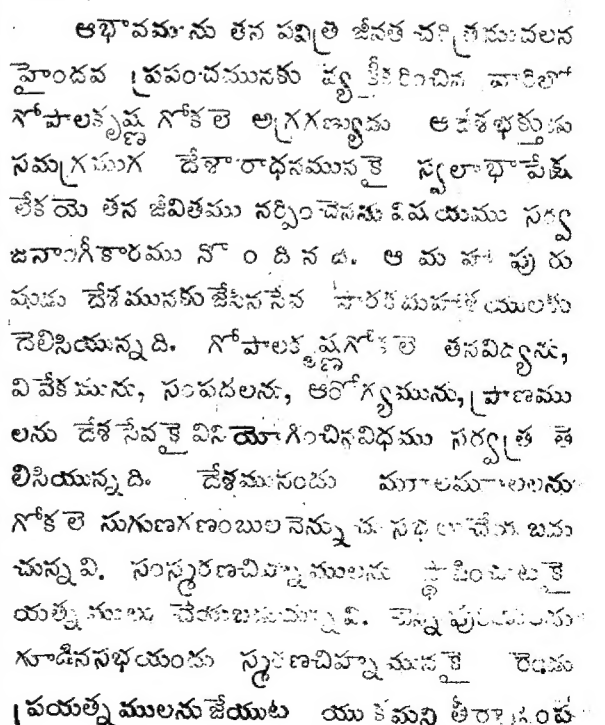 ఆభావమును తన పవిత్ర జీవిత చరిత్రమువలన
హైందవ ప్రపంచమునకు వ్యక్తీకరించిన వారిలో
గోపాలకృష్ణ గోకలె అగ్రగణ్యుడు ఆ దేశభక్తుడు
సమగ్రముగ దేశారాధనమునకై స్వలాభాపేక్ష
లేకయె తన జీవితము నర్పించెనను విషయము సర్వ
జనాంగీకారము నొందినది. ఆ మహాపురు
షుడు దేశమునకుజేసినసేవ పాఠకమహాశయులకు
దెలిసియున్నది. గోపాలకృష్ణగోకలె తనవిద్యను,
వివేకమును, సంపదలను, ఆరోగ్యమును, ప్రాణము
లను దేశసేవకై వినియోగించినవిధము సర్వత్ర తె
లిసియున్నది. దేశమునందు
గోకలె సుగుణగణంబులనెన్నుచు సభలుచేయబడు
చున్నవి. సంస్మరణచిహ్నములను స్థాపించుటకై
యత్నములు చేయబడుచున్నవి. చెన్నపురియందు
గూడినసభయందు స్మరణచిహ్నమునకై రెండు
ప్రయత్నములనుజేయుట యుక్తమని